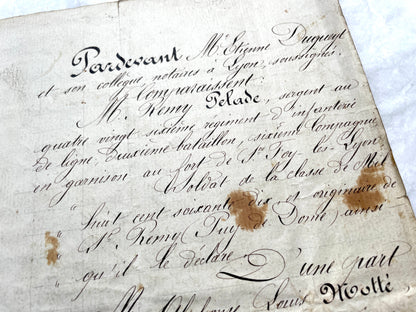 Pardevant Me Etienne Dugueyt
et son collègue, notaires à Lyon, soussignés.
Comparaissent:
M. Rémy Pelade, sergent au
quatre vingt sixième régiment d'infanterie
de ligne, deuxième bataillon, sixième Compagnie,
en garnison au fort de Ste Foy-les-Lyon
" Soldat de la classe de Mil
" huit cent soixante dix et originaire de
" St Rémy (Puy de Dôme) ainsi
" qu'il le déclare.
D'une part
M. Louis Motte,